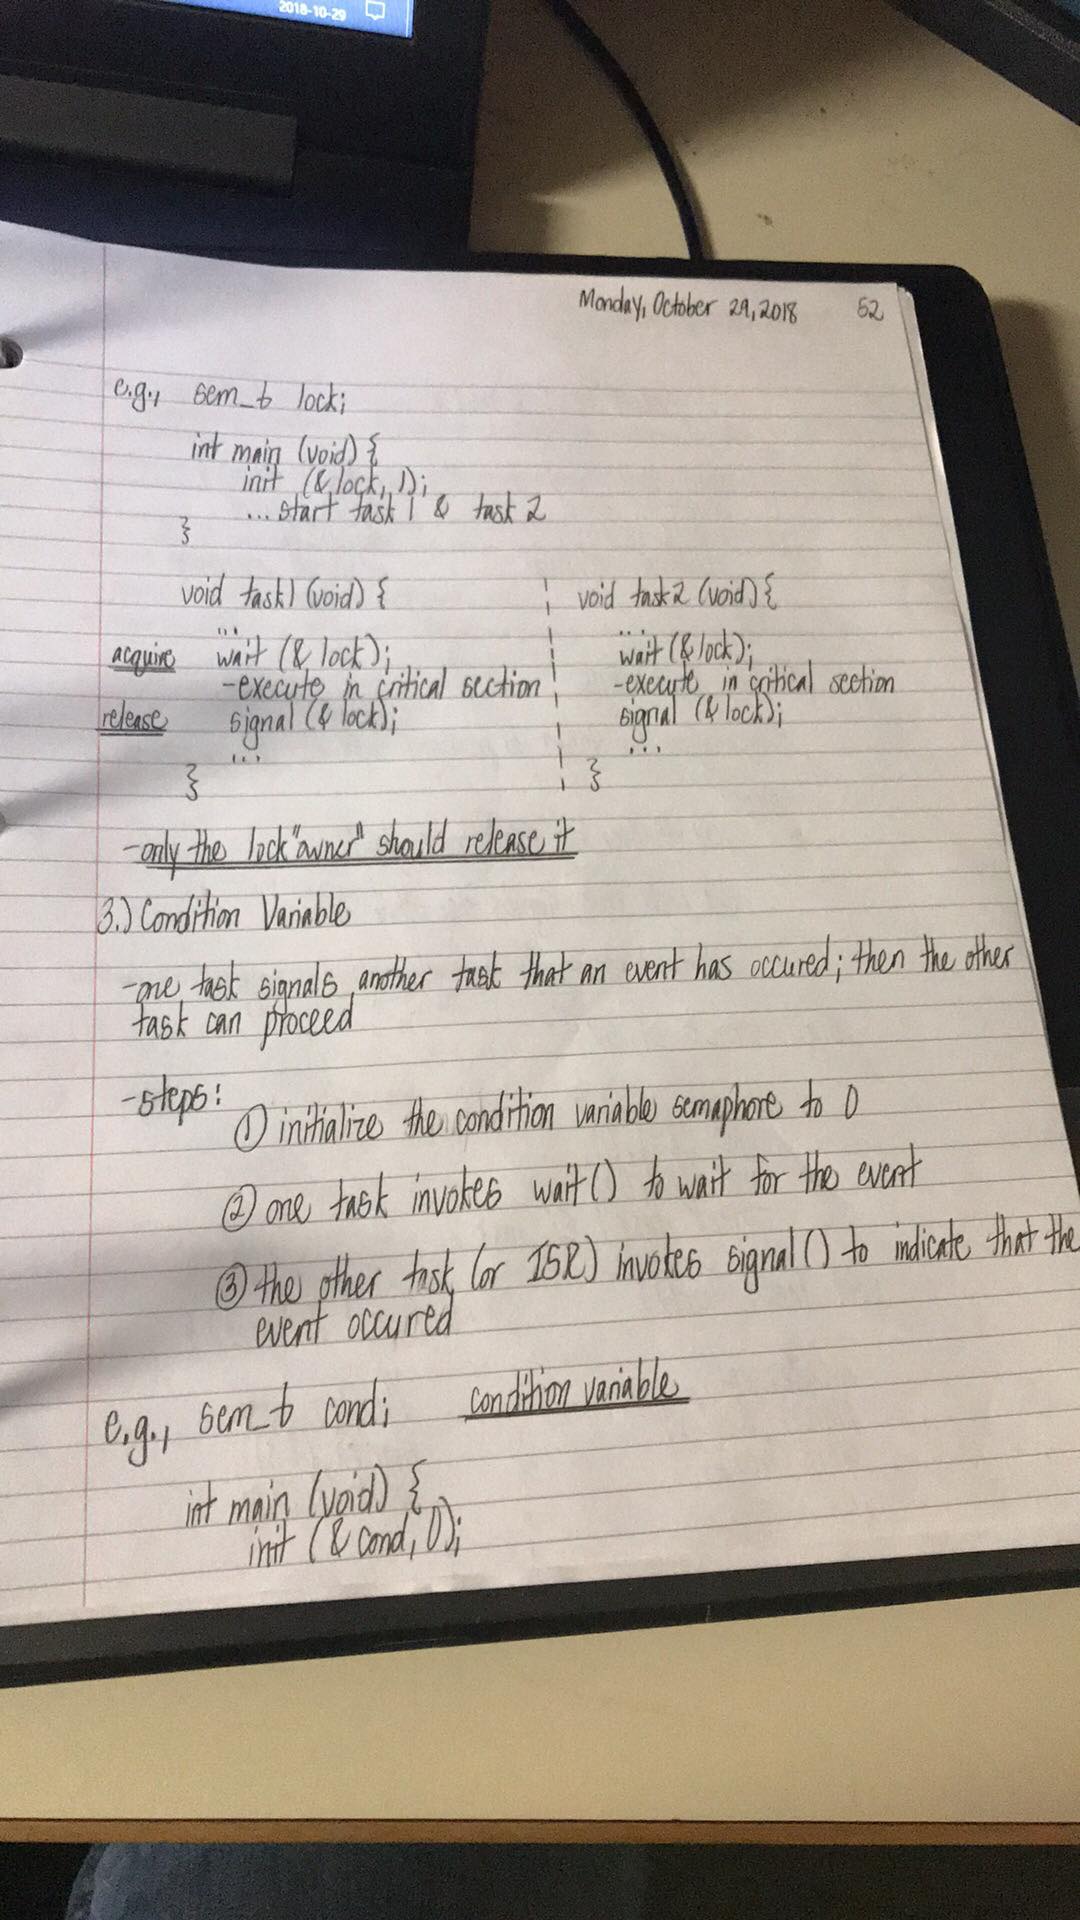 2018-10-29
Monday, October 29, 2018 52
e.g., sem_t lock;
int main (void) {
init (& lock, 1);
... start task 1 & task 2
}
void task1 (void) { void task2 (void) {
... ...
acquire wait (& lock); wait (& lock);
-execute in critical section -execute in critical section
release signal (& lock); signal (& lock);
... ...
} }
-only the lock "owner" should release it
3.) Condition Variable
-one task signals another task that an event has occured; then the other
task can proceed
-steps:
① initialize the condition variable semaphore to 0
② one task invokes wait() to wait for the event
③ the other task (or ISR) invokes signal() to indicate that the
event occured
e.g., sem_t cond; condition variable
int main (void) {
init (& cond, 0);